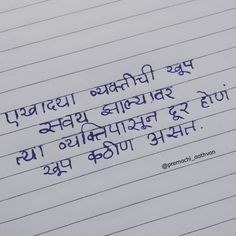 एखादया व्यक्तीची खूप
सवय झाल्यावर
त्या व्यक्तिपासून दूर होणं
खूप कठीण असतं.
@premachi_aathvan